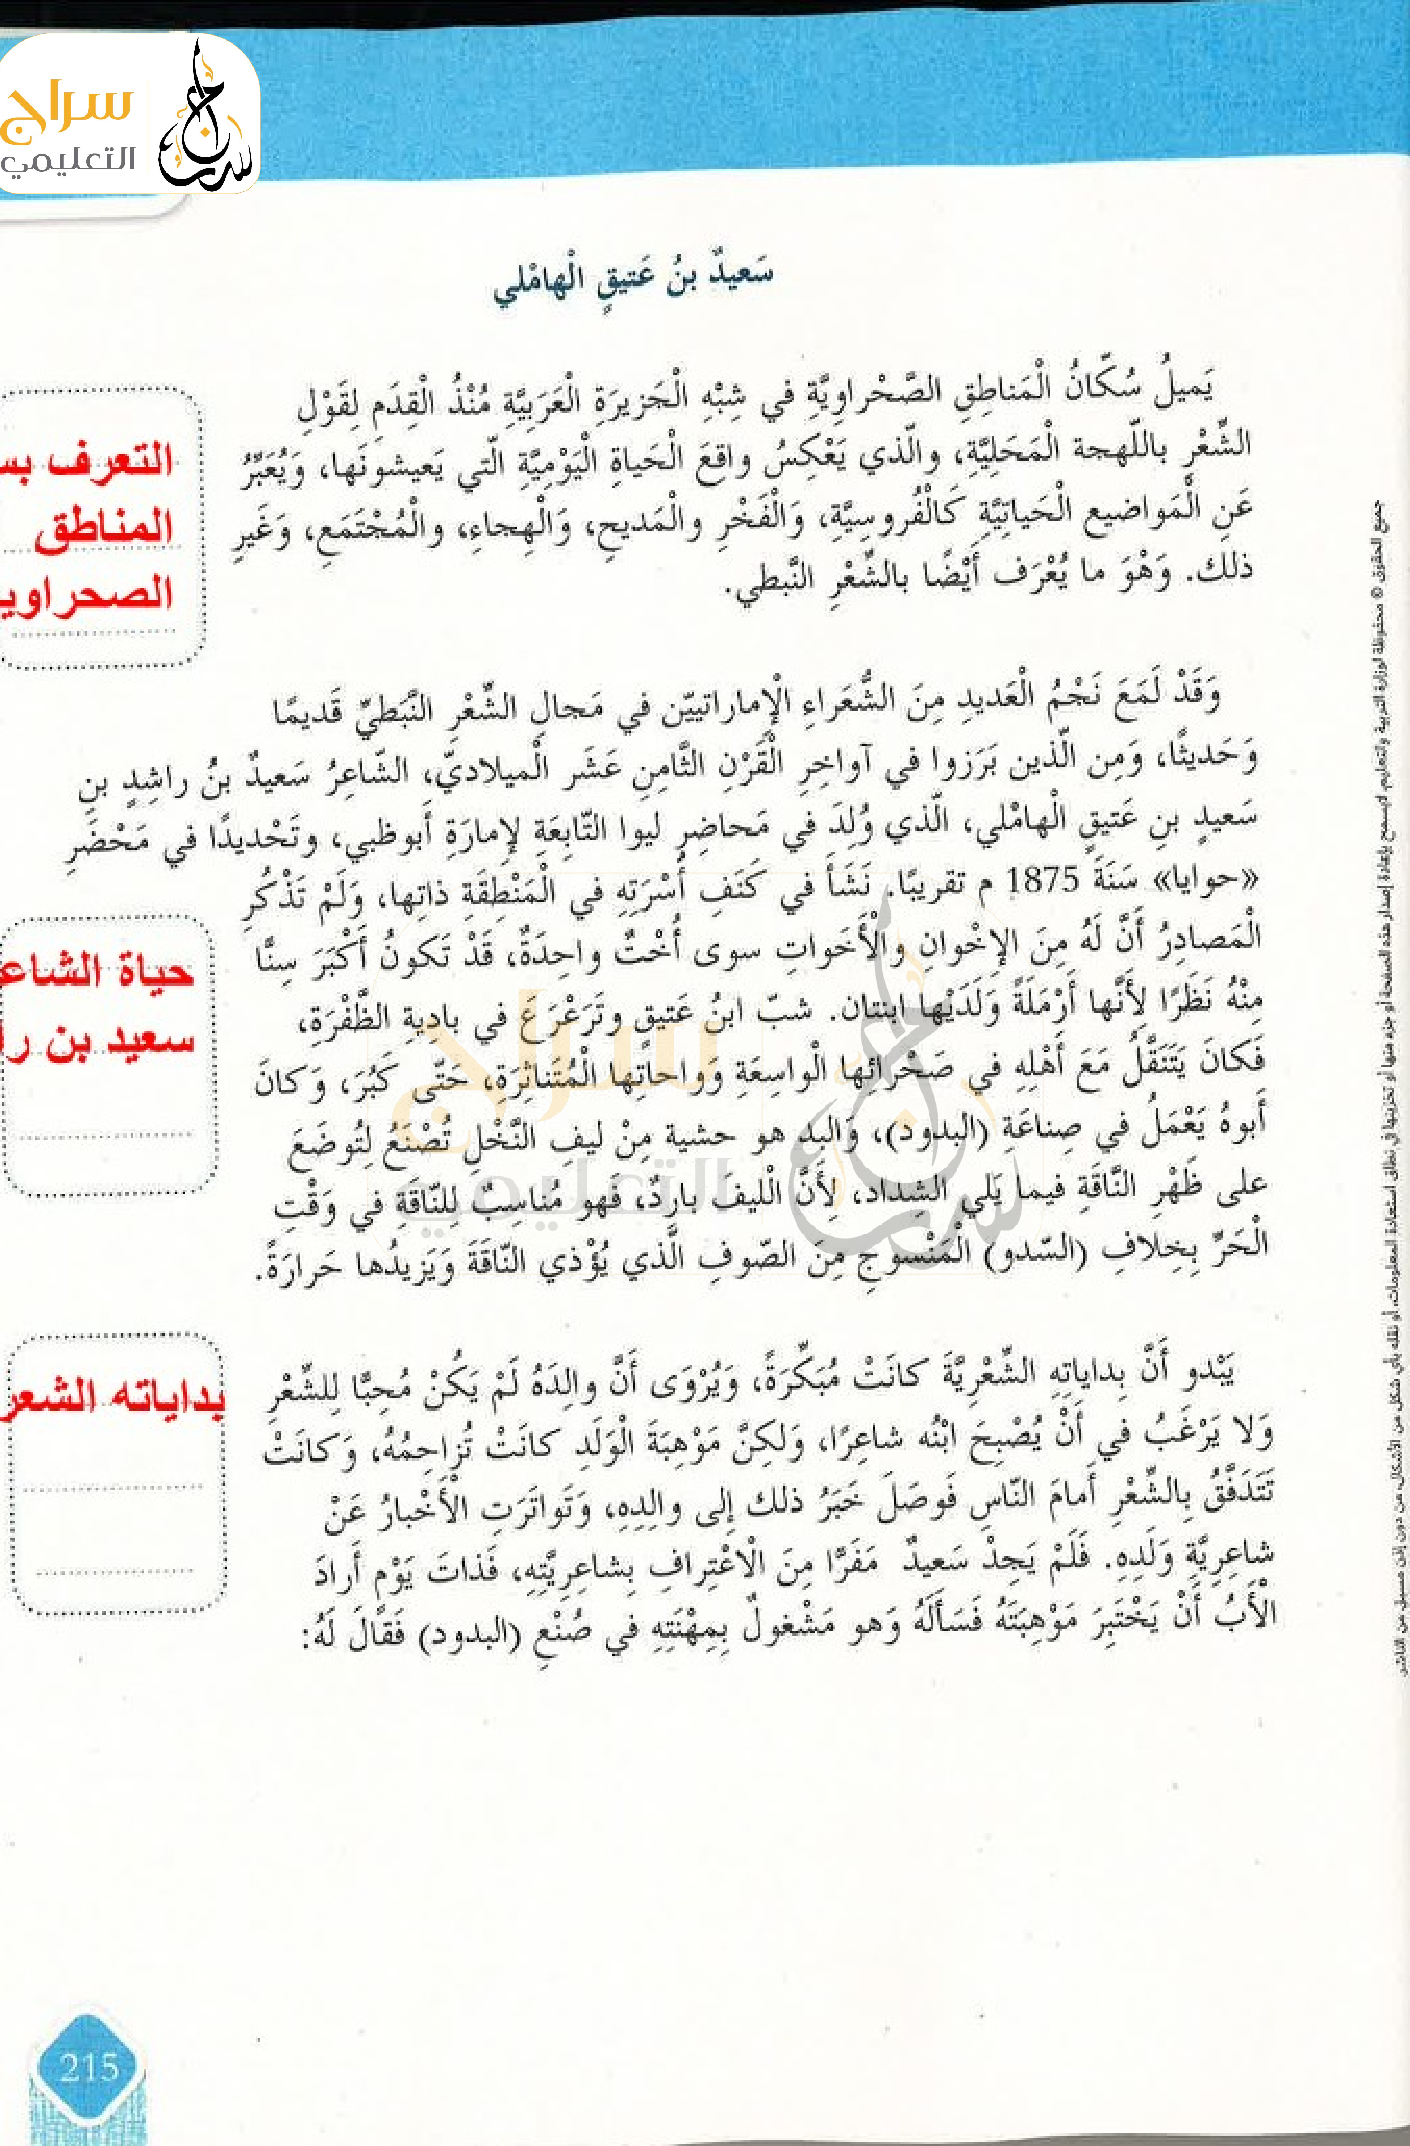 سراج
التعليمي
سَعيدٌ بنُ عَتيقٍ الْهامْلي
يَميلُ سُكّانُ الْمَناطِقِ الصَّحْراوِيَّةِ في شِبْهِ الْجَزيرَةِ الْعَرَبِيَّةِ مُنْذُ الْقِدَمِ لِقَوْلِ
الشِّعْرِ باللّهجة الْمَحَلِيَّةِ، والّذي يَعْكِسُ واقِعَ الْحَياةِ الْيَوْمِيَّةِ الّتي يَعيشونَها، وَيُعَبِّرُ
عَنِ الْمَواضيع الْحَياتِيَّةِ كَالْفُروسِيَّةِ، وَالْفَخْرِ والْمَديحِ، وَالْهِجاءِ، والْمُجْتَمَعِ، وَغَيرِ
ذلك. وَهْوَ ما يُعْرَف أَيْضًا بالشِّعْرِ النَّبطي.
التعرف بس
المناطق
الصحراوي
وَقَدْ لَمَعَ نَجْمُ الْعَديدِ مِنَ الشُّعَراءِ الْإماراتييّن في مَجالِ الشِّعْرِ النَّبَطيِّ قَديمًا
وَحَديثًا، وَمِن الّذين بَرَزوا في آواخِرِ الْقَرْنِ الثَّامِنِ عَشَر الْميلاديّ، الشّاعِرُ سَعيدٌ بنُ راشِدٍ بنِ
سَعيدٍ بنِ عَتيقٍ الْهامْلي، الّذي وُلِدَ في مَحاضِرِ ليوا التّابِعَةِ لِإمارَةِ أَبوظبي، وتَحْديدًا في مَحْضَرِ
«حوايا» سَنَةَ 1875 م تقريبًا. نَشَأَ في كَنَفِ أُسْرَتِهِ في الْمَنْطِقَةِ ذاتِها، وَلَمْ تَذْكُرِ
الْمَصادِرُ أَنَّ لَهُ مِنَ الإخْوانِ والْأَخَواتِ سوى أُخْتٌ واحِدَةٌ، قَدْ تَكونُ أَكْبَرَ سِنًّا
مِنْهُ نَظَرًا لِأَنَّها أَرْمَلَةً وَلَدَيْها ابنتان. شبّ ابنُ عَتيق وتَرَعْرَعَ في باديةِ الظَّفْرَةِ،
فَكانَ يَتَنَقَّلُ مَعَ أَهْلِهِ في صَحْرائِها الْواسِعَةِ وَواحاتِها الْمُتَناثِرَةِ، حَتّى كَبُرَ، وَكانَ
أَبوهُ يَعْمَلُ في صِناعَةِ (البدود)، وَالبد هو حشية مِنْ ليفِ النَّخْلِ تُصْنَعُ لِتُوضَعَ
على ظَهْرِ النَّاقَةِ فيما يَلي الشِداد، لِأَنَّ الْليفَ بارِدٌ، فَهو مُناسِبٌ لِلنّاقَةِ في وَقْتِ
الْحَرِّ بِخِلافِ (السّدو) الْمَنْسوجِ مِنَ الصّوفِ الَّذي يُؤْذي النّاقَةَ وَيَزيدُها حَرارَةً.
حياة الشاع
سعيد بن را
يَبْدو أَنَّ بِداياتِهِ الشِّعْرِيَّةَ كانَتْ مُبَكِّرَةً، وَيُرْوَى أَنَّ والِدَهُ لَمْ يَكُنْ مُحِبًّا لِلشِّعْرِ
وَلا يَرْغَبُ في أَنْ يُصْبِحَ ابْنُه شاعِرًا، وَلكِنَّ مَوْهِبَةَ الْوَلَدِ كانَتْ تُزاحِمُهُ، وَكانَتْ
تَتَدَفَّقُ بِالشِّعْرِ أَمامَ النّاسِ فَوصَلَ خَبَرُ ذلك إلى والِدِهِ، وَتَواتَرَتِ الْأَخْبارُ عَنْ
شاعِرِيَّةِ وَلَدِهِ. فَلَمْ يَجِدْ سَعيدٌ مَفَرًّا مِنَ الْاعْتِرافِ بِشاعِرِيَّتِهِ، فَذاتَ يَوْمٍ أَرادَ
الْأَبُ أَنْ يَخْتَبِرَ مَوْهِبَتَهُ فَسَأَلَهُ وَهو مَشْغولٌ بِمِهْنَتِهِ في صُنْعِ (البدود) فَقالَ لَهُ:
بداياته الشعر
جميع الحقوق © محفوظة لوزارة التربية والتعليم. لايسمح بإعادة إصدار هذه الصفحة أو جزء منها أو تخزينها في نطاق استعادة المعلومات، أو نقله بأي شكل من الأشكال، من دون إذن مسبق من الناشر
215